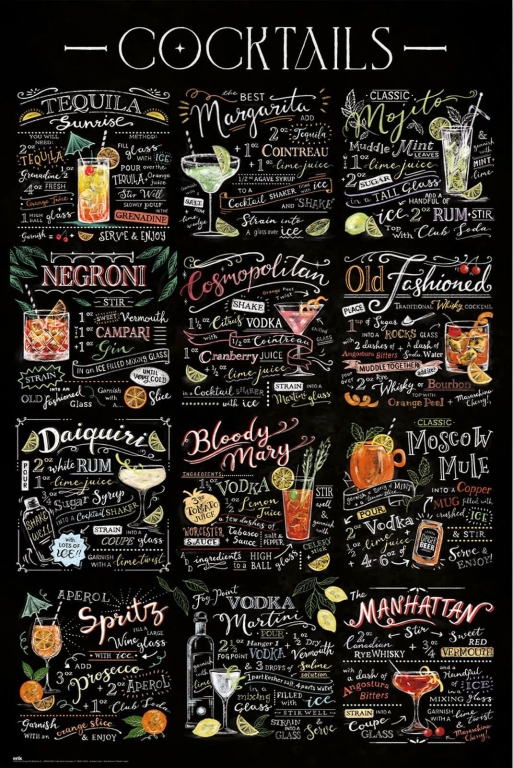 COCKTAILS
TEQUILA
Sunrise
YOU WILL NEED:
2 oz
TEQUILA
Grenadine
4 oz FRESH
Orange Juice
1 HIGH BALL glass
METHOD:
FILL glass
WITH ICE
POUR over the
TEQUILA Orange juice
Stir Well
SLOWLY POUR in the
GRENADINE
Garnish =
SERVE & ENJOY
the BEST
Margarita
ADD
2 oz Tequila
1 oz COINTREAU
1 oz lime juice
1/2 oz AGAVE SYRUP
TO A
Cocktail SHAKER with ice
AND "SHAKE"
SALT
Strain into
A glass over ice
CLASSIC
Mojito
Muddle Mint LEAVES
1 oz lime juice
2 oz SUGAR
in a TALL Glass
ADD A HANDFUL OF
ice 2 oz RUM + STIR
Top with Club Soda
& garnish with
MINT
lime
NEGRONI
STIR
1 oz SWEET Vermouth
1 oz CAMPARI
1 oz Gin
IN an ICE FILLED MIXING GLASS
STRAIN
UNTIL VERY COLD
INTO AN
OLD fashioned Glass
Garnish with a
Slice
Cosmopolitan
SHAKE
Orange Peel Twist
1 1/2 oz Citrus VODKA
1/2 oz Cointreau
1 oz Cranberry JUICE
lime juice
in a Cocktail SHAKER
with ice
STRAIN INTO A
Martini glass
Old Fashioned
PLACE
TRADITIONAL Whisky COCKTAIL
1 tsp of Sugar
INTO A ROCKS GLASS
2 dashes of
Angostura Bitters
a dash of
Soda Water
MUDDLE TOGETHER
add ice
2 oz Rye Whisky or Bourbon
TOP WITH
Orange Peel + Maraschino Cherry!
Daiquiri
POUR
2 oz white RUM
1 oz lime juice
Sugar Syrup
INTO a Cocktail SHAKER
SHAKE WELL
with LOTS OF ICE!!
STRAIN INTO A
COUPE glass
GARNISH WITH a lime twist
Bloody Mary
INGREDIENTS
1 oz VODKA
3 oz TOMATO JUICE
1/2 oz Lemon Juice
a few dashes of
WORCESTER SAUCE
Tabasco Sauce
salt & PEPPER
STIR
ingredients
into a
HIGH BALL glass
garnish
CELERY STICK
CLASSIC
Moscow MULE
INTO A Copper
MUG filled with
crushed ICE
& STIR
POUR
2 oz Vodka
lime juice
4-6 oz
GINGER BEER
Serve & ENJOY!
APEROL
Spritz
FILL A LARGE
Wineglass
WITH ICE
3 oz ADD
Prosecco
2 oz APEROL
+ 1 oz Club Soda
Garnish
WITH an orange slice
& ENJOY
Fog Point
VODKA
Martini
POUR
2 1/2 oz Hangar 1 FOGPOINT VODKA
1/2 oz Dry Vermouth
& 3 DROPS of Saline solution
1 part kosher salt, 4 parts water
in a mixing Glass
FILLED with ice
STIR WELL
STRAIN into a
GLASS & Serve
garnish with a
lemon
The MANHATTAN
Stir
2 oz Canadian
RYE WHISKY
+ 3/4 oz Sweet RED
VERMOUTH
with a dash of
Angostura Bitters
and a Handful
of ICE
IN A MIXING glass
STRAIN INTO A
Coupe GLASS
GARNISH WITH a lime twist &
Maraschino Cherry!
erik